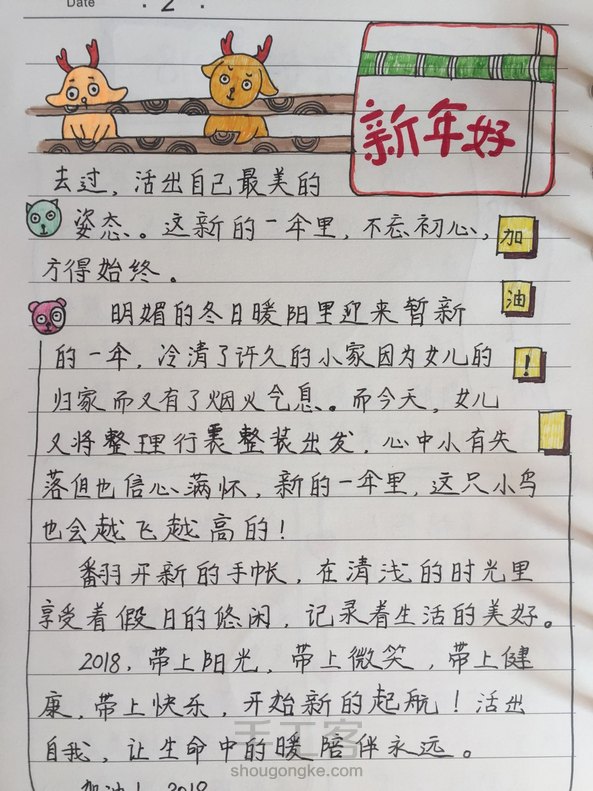 Date
2
新年好
去过，活出自己最美的
姿态。这新的一年里，不忘初心，
加
方得始终。
油
明媚的冬日暖阳里迎来暂新
！
的一年，冷清了许久的小家因为女儿的
归家而又有了烟火气息。而今天，女儿
又将整理行裹整装出发，心中小有失
落但也信心满怀，新的一年里，这只小鸟
也会越飞越高的！
翻开新的手帐，在清浅的时光里
享受着假日的悠闲，记录着生活的美好。
2018，带上阳光，带上微笑，带上健
康，带上快乐，开始新的起航！活出
自我，让生命中的暖陪伴永远。
手工客
shougongke.com
加油！2018